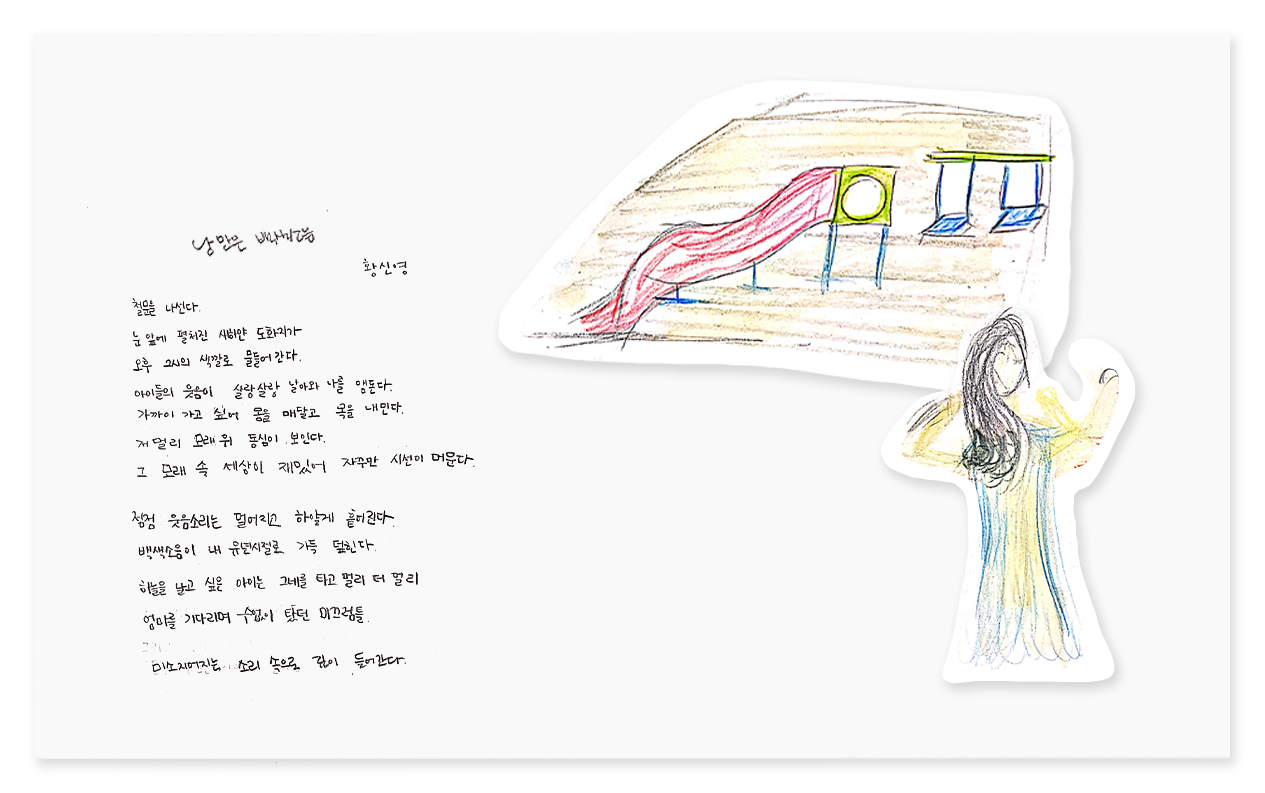 낮 만은
황신영
철문을 나선다.
눈 앞에 펼쳐진 새하얀 도화지가
오후 2시의 색깔로 물들어 간다.
아이들의 웃음이 살랑살랑 날아와 나를 맴돈다.
가까이 가고 싶어 몸을 매달고 목을 내민다.
저 멀리 모래 위 동심이 보인다.
그 모래 속 세상이 재밌어 자꾸만 시선이 머문다.
점점 웃음소리는 멀어지고 하얗게 흩어진다.
백색소음이 내 유년시절로 가득 덮힌다.
하늘을 날고 싶은 아이는 그네를 타고 멀리 더 멀리
엄마를 기다리며 수없이 탔던 미끄럼틀.
미소지어진는 소리 속으로 깊이 들어간다.